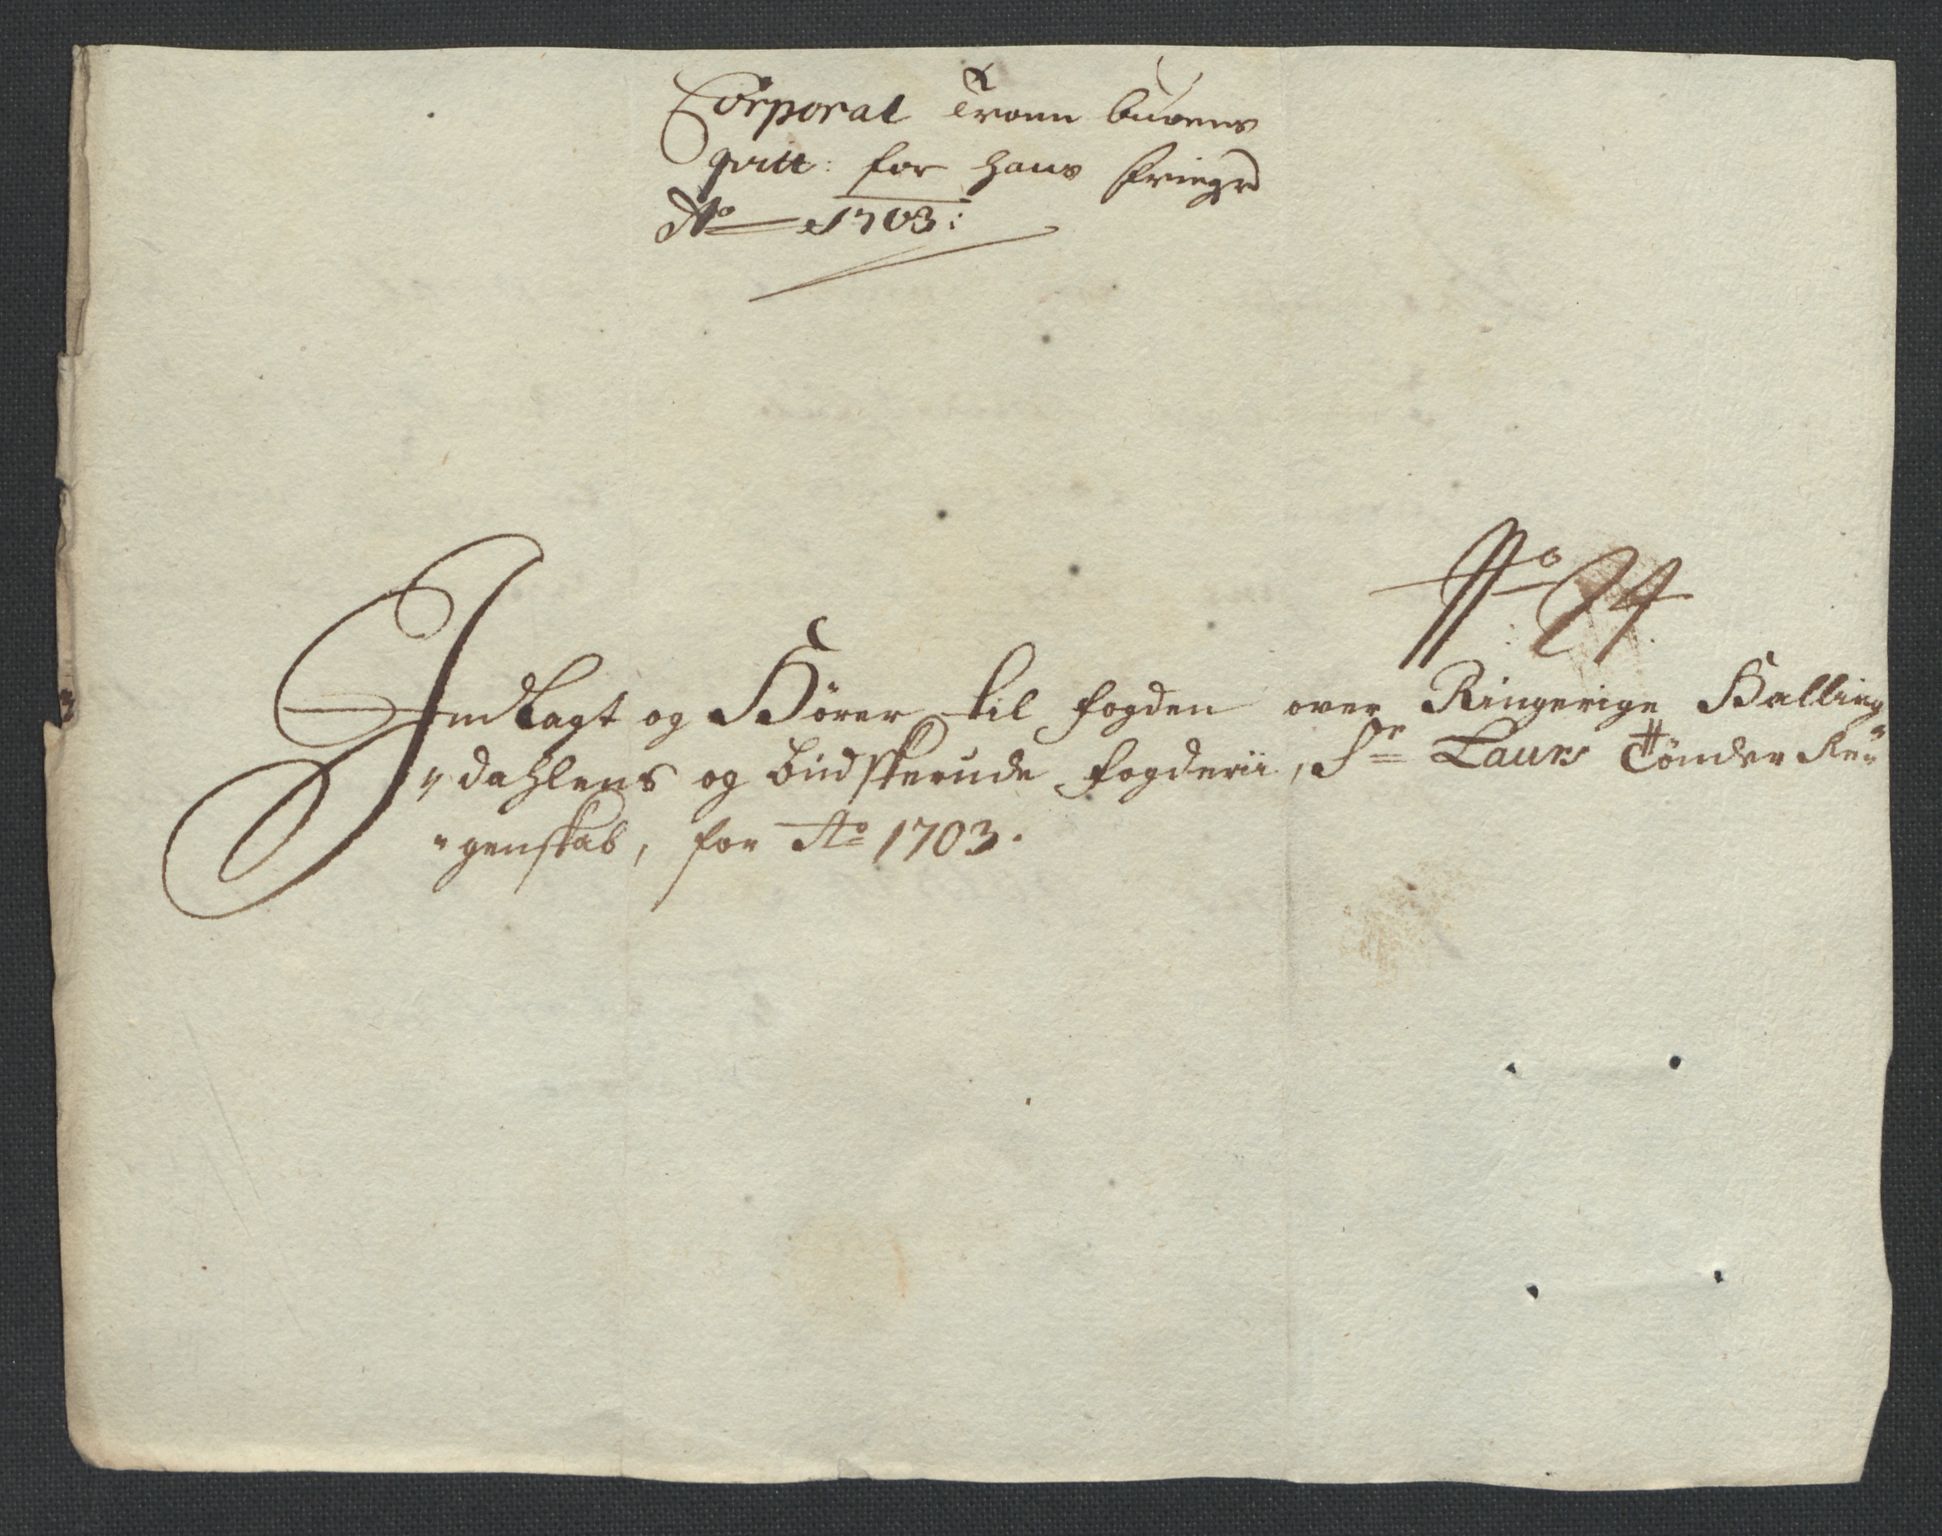 Corporal Tronn buvens
qvitt: for hans friegrd
Ao 1703:
No 24
Indlagt og Hörer til fogden over Ringerige Halling„
„dahlens og budskerude fogderii, Sr Laurs Tönder Re„
„genskab, for Ao 1703.